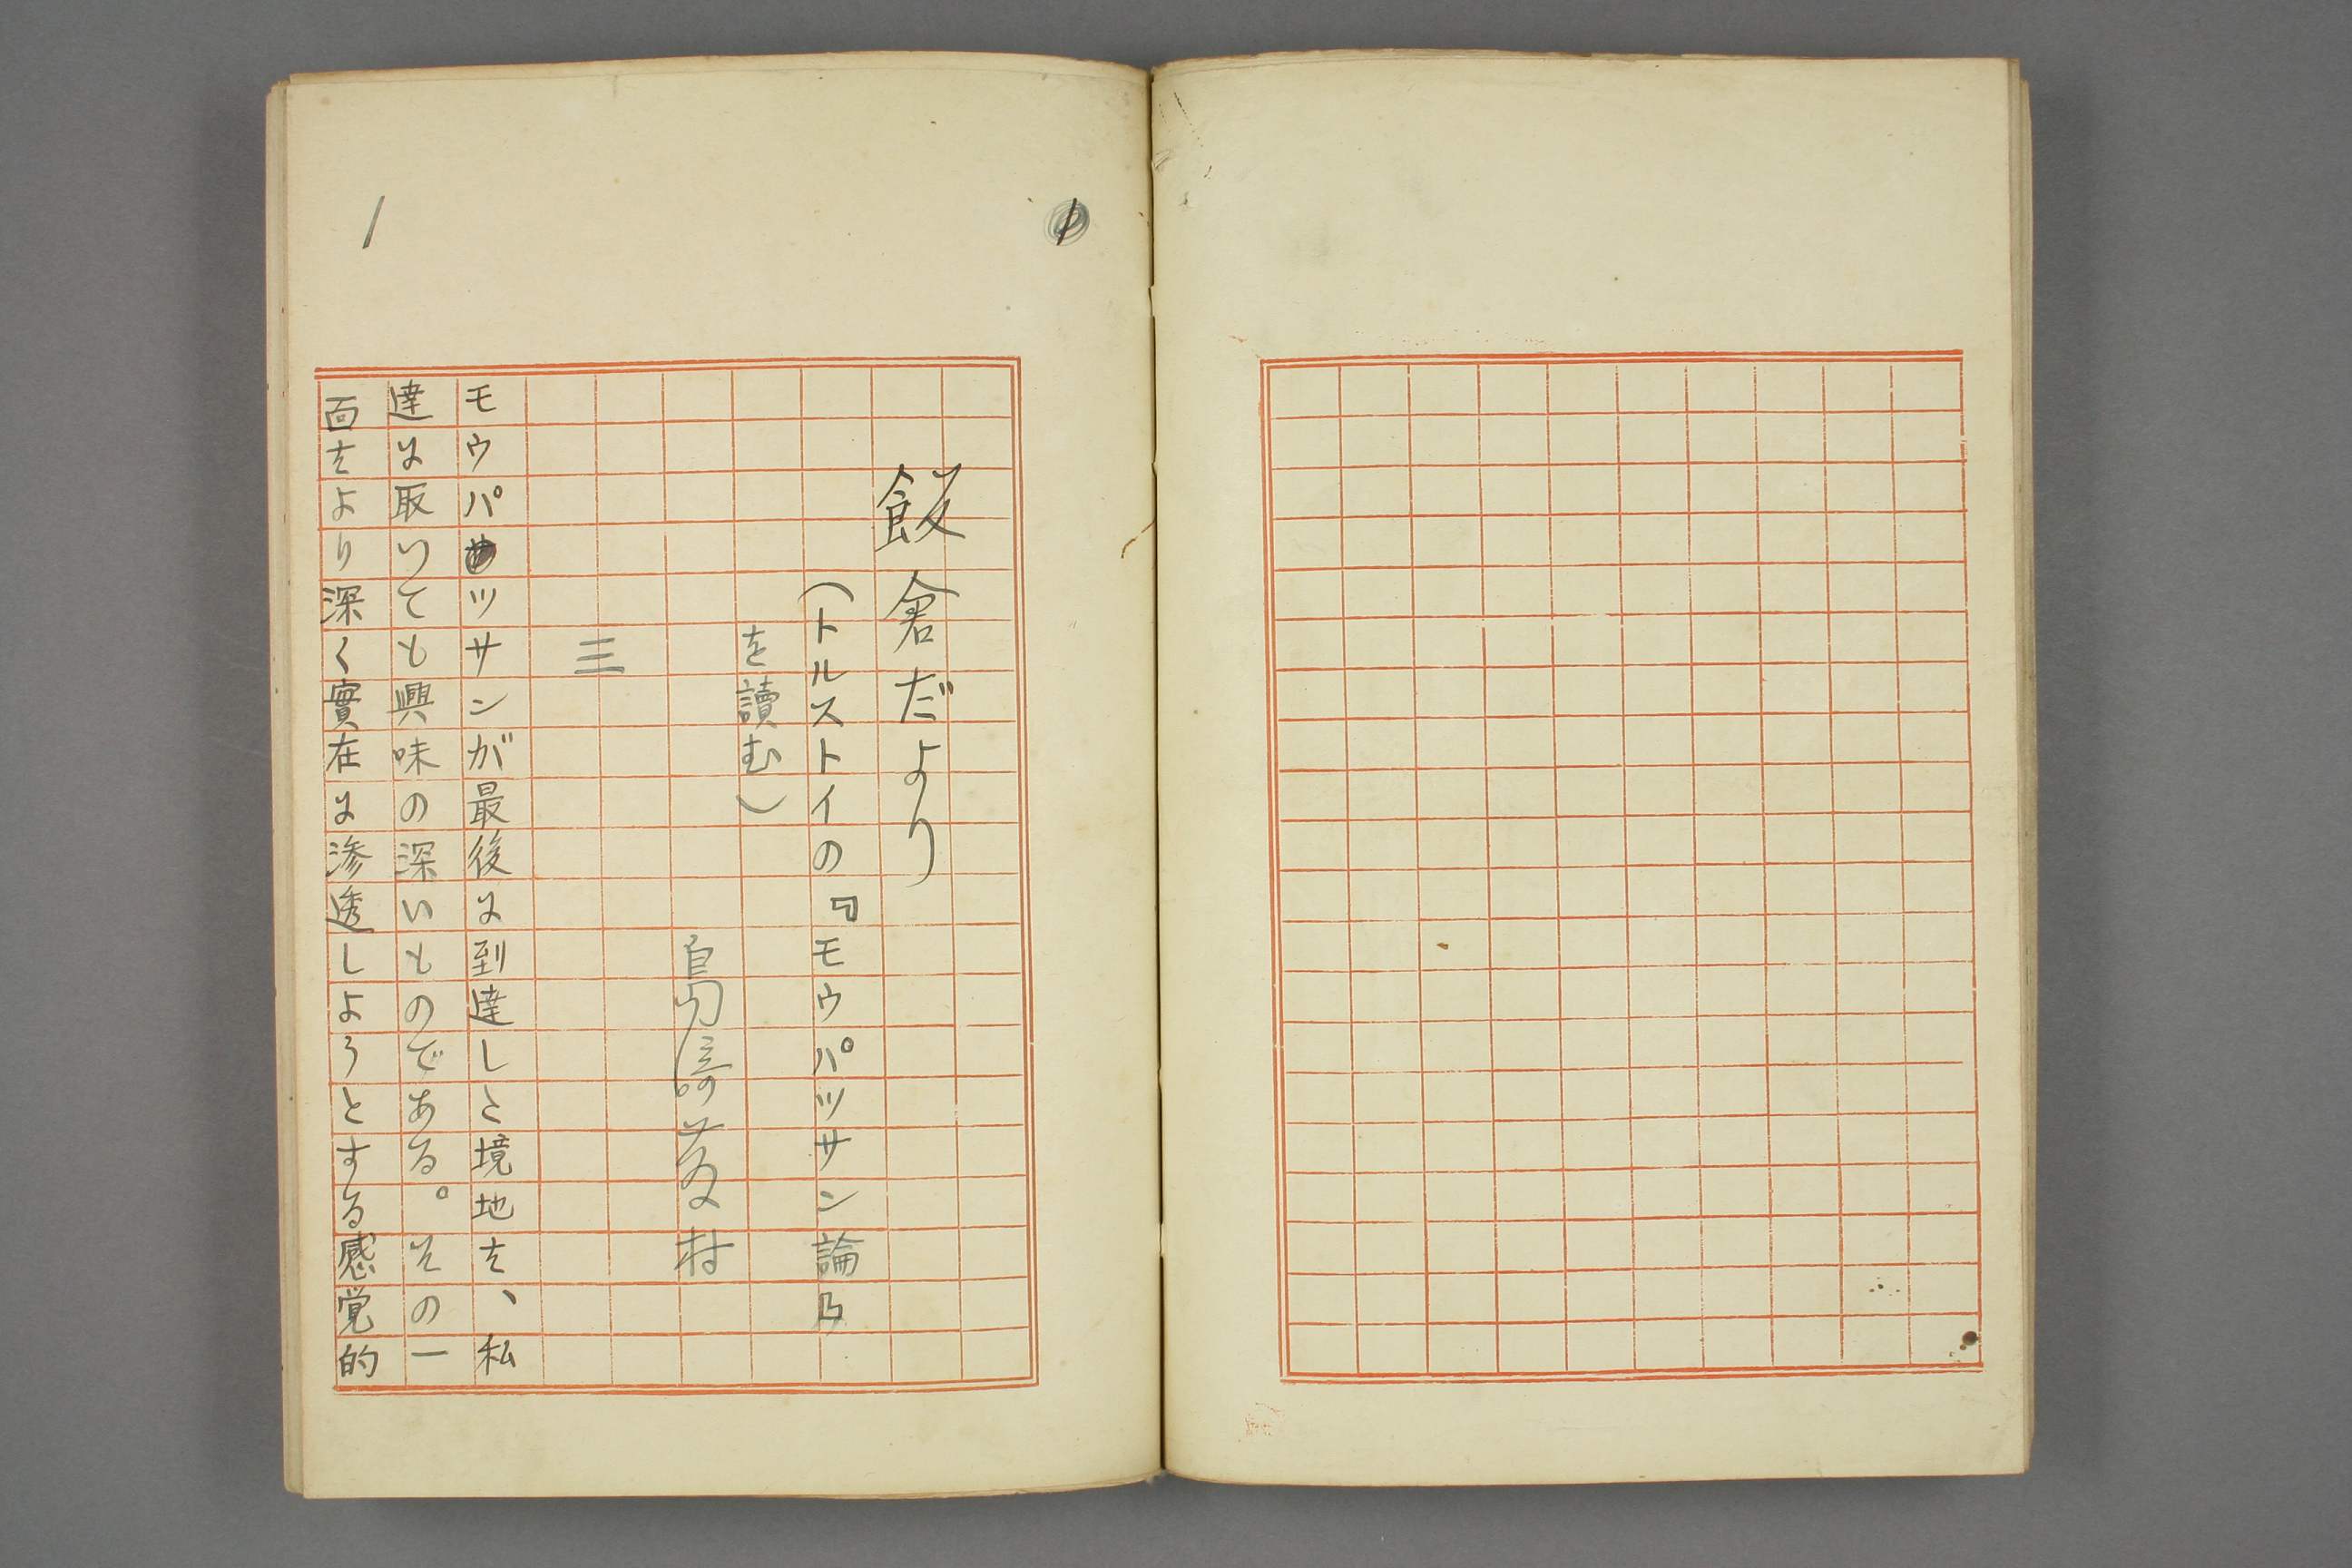 1
飯倉だより
(トルストイの『モウパツサン論』
を讀む)
島崎藤村
三
モウパツサンが最後に到達した境地を、私
達に取いても興味の深いものである。その一
面をより深く實在に滲透しようとする感覚的
1